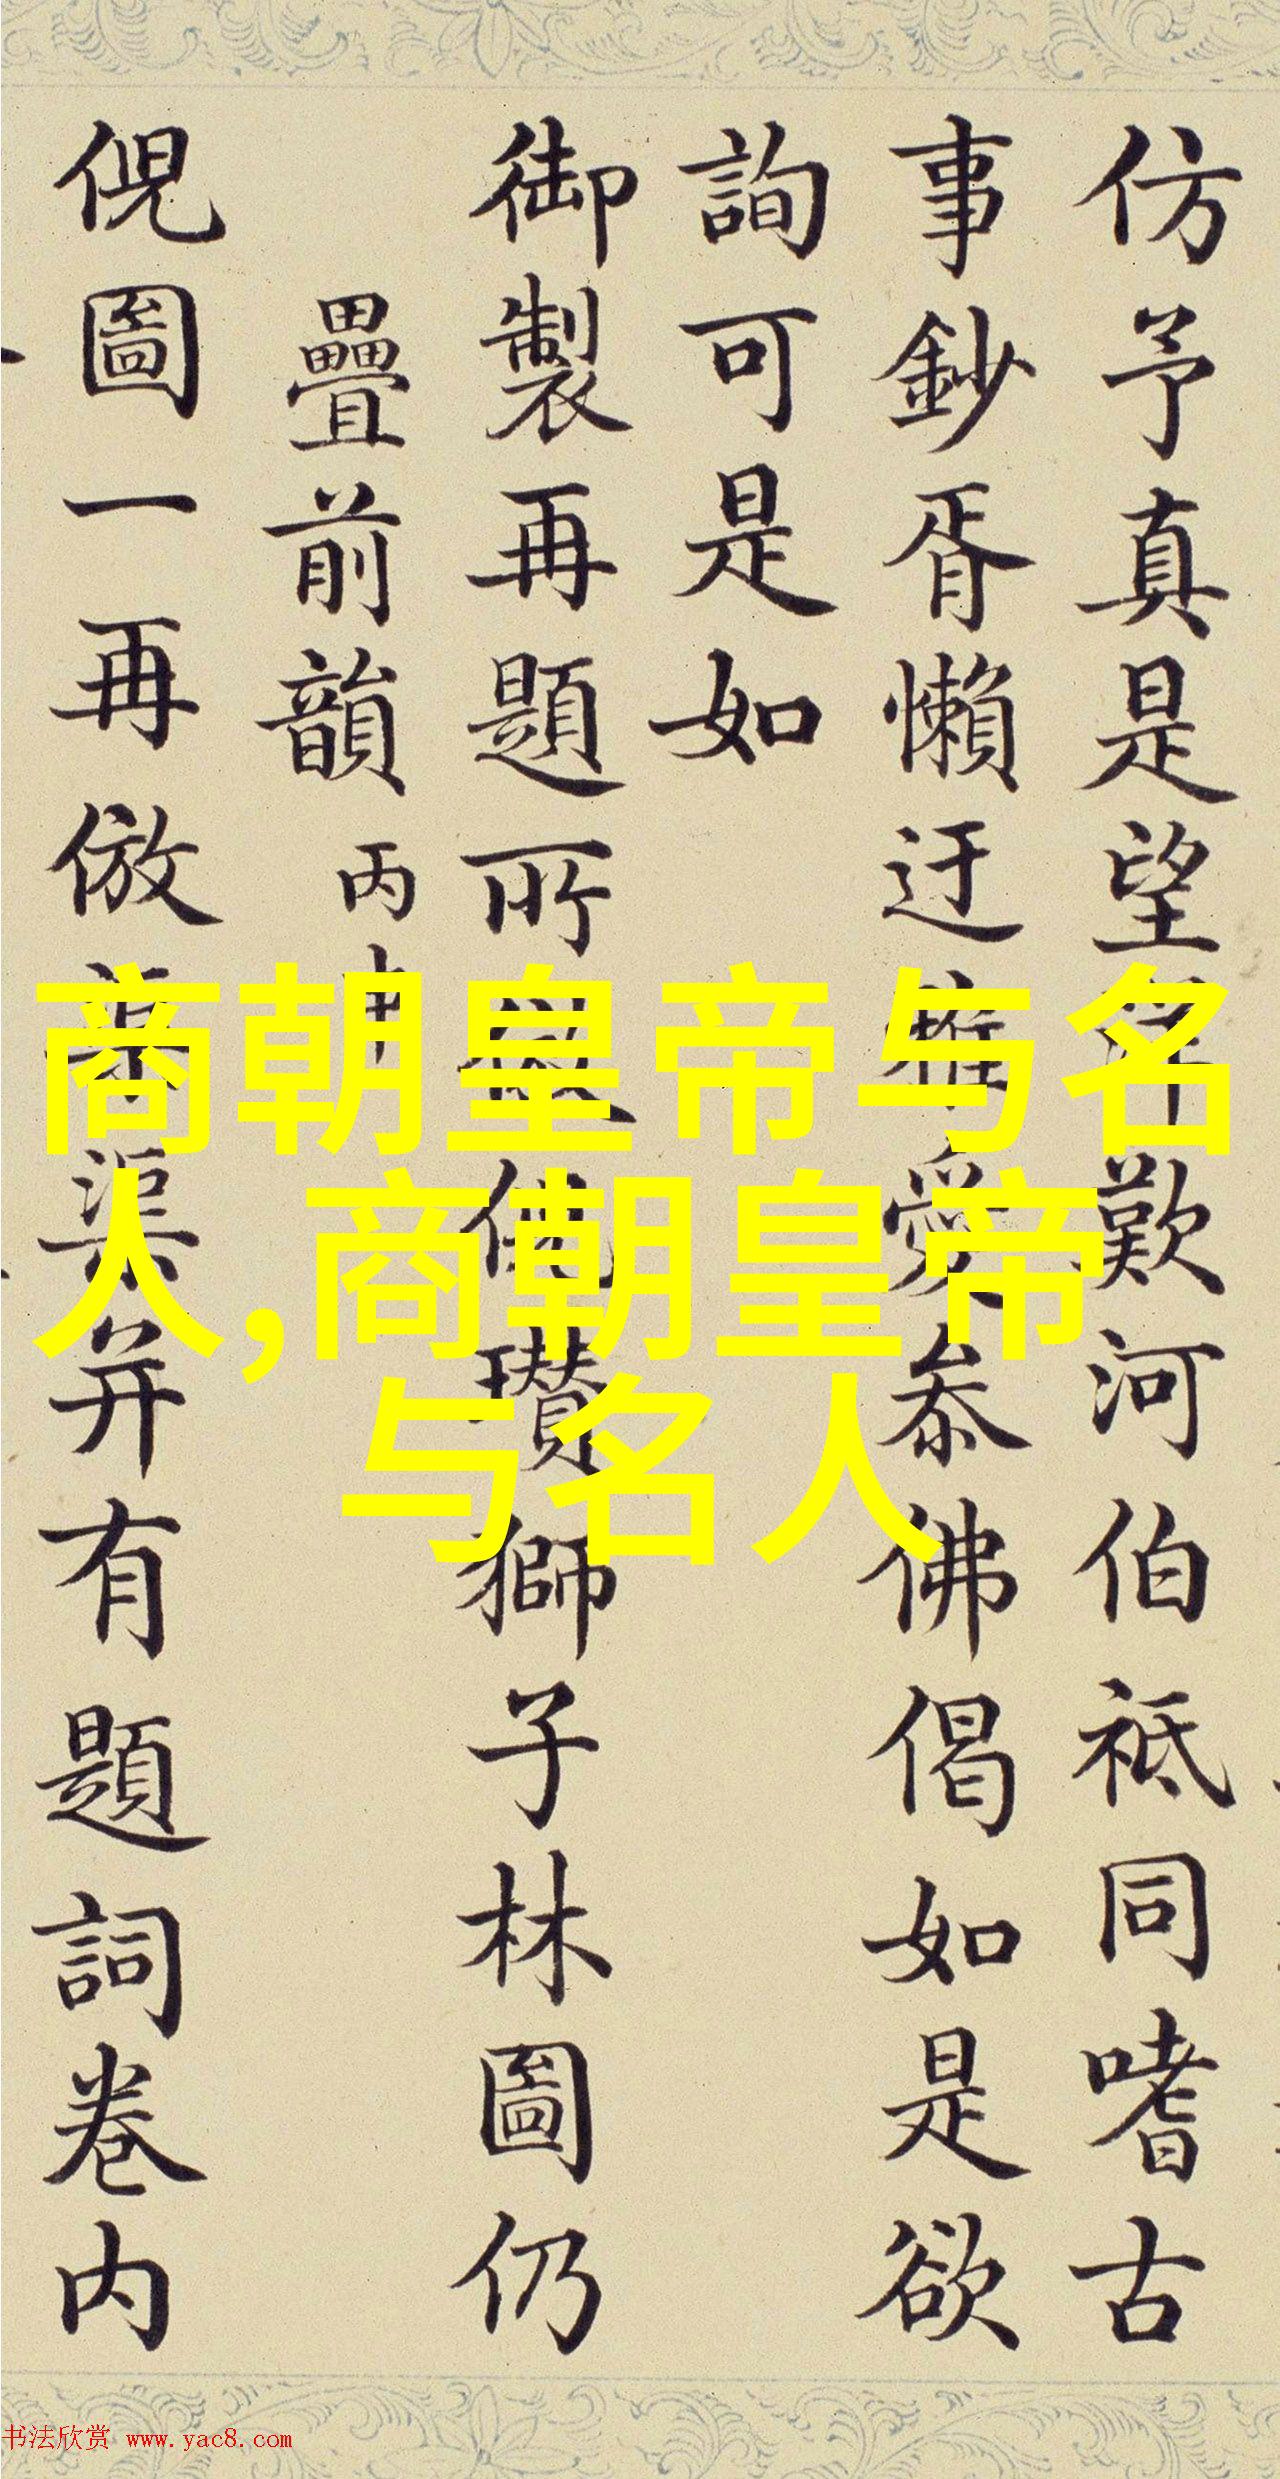 仿予真是望洋歎河伯祗同嗜古
事鈔胥懶迂雅愛叅佛偈如是欲
詢可是如
御製再題所倣倪瓚獅子林圖仍
疊前韻 丙申
倪圖一再倣藁渠并有題詞卷内
商朝皇帝与名
人,商朝皇帝
与名人
书法欣赏 www.yac8.com